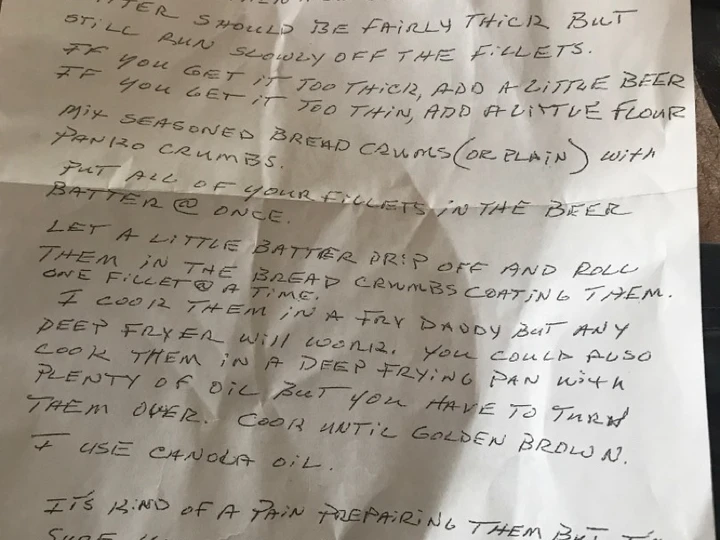 SHOULD BE FAIRLY THICK BUT
STILL RUN SLOWLY OFF THE FILLETS.
IF YOU GET IT TOO THICK, ADD A LITTLE BEER
IF YOU GET IT TOO THIN, ADD A LITTLE FLOUR
MIX SEASONED BREAD CRUMS (OR PLAIN) WITH
PANKO CRUMBS.
PUT ALL OF YOUR FILLETS IN THE BEER
BATTER @ ONCE.
LET A LITTLE BATTER DRIP OFF AND ROLL
THEM IN THE BREAD CRUMBS COATING THEM.
ONE FILLET @ A TIME.
I COOK THEM IN A FRY DADDY BUT ANY
DEEP FRYER WILL WORK. YOU COULD ALSO
COOK THEM IN A DEEP FRYING PAN WITH
PLENTY OF OIL BUT YOU HAVE TO TURN
THEM OVER. COOK UNTIL GOLDEN BROWN.
I USE CANOLA OIL.
IT'S KIND OF A PAIN PREPARING THEM BUT